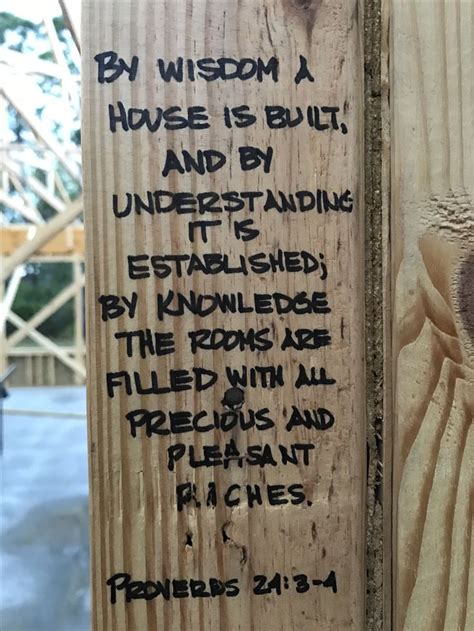 BY WISDOM A
HOUSE IS BUILT,
AND BY
UNDERSTANDING
IT IS
ESTABLISHED;
BY KNOWLEDGE
THE ROOMS ARE
FILLED WITH ALL
PRECIOUS AND
PLEASANT
RICHES.
PROVERBS 24:3-4